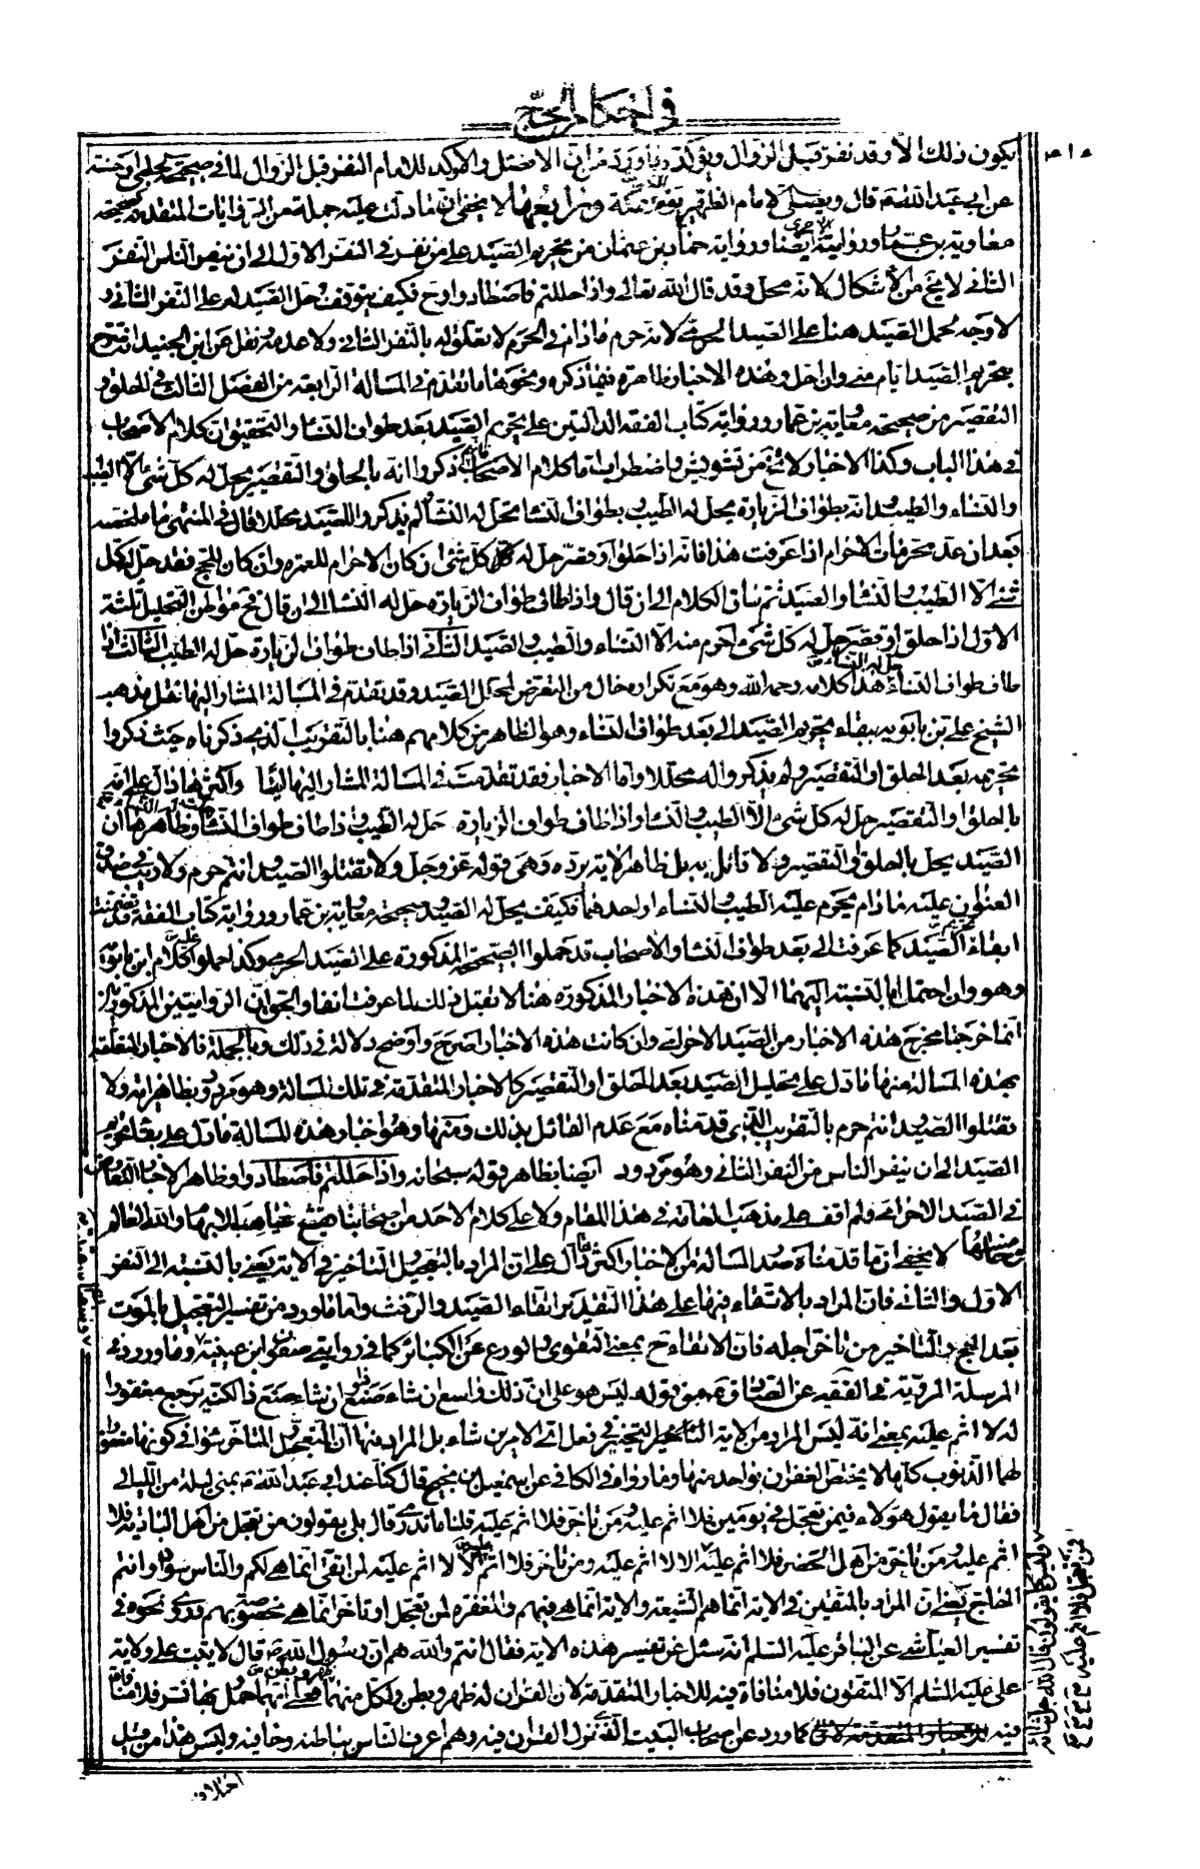 في احكام الحج
يكون ذلك الا وقد نفر قبل الزوال ويؤيده ما ورد من ان الافضل والاوكد للامام النفر قبل الزوال لما في صحيحة الحلبي او حسنته
عن ابي عبد الله ع قال ويصلي الامام الظهر يوم النفر بمكة ورابعها لا يخفى ان ما دلت عليه جملة من الروايات المتقدمة كصحيحة
معاوية بن عمار وروايته الاخرى ايضا ورواية حماد بن عثمان من تحريم الصيد على من نفر في النفر الاول الى ان ينفر الناس النفر
الثاني لا يخ من الاشكال لانه محل وقد قال الله تعالى واذا حللتم فاصطادوا وح فكيف يتوقف حل الصيد له على النفر الثاني و
لا وجه لحمل الصيد هنا على الصيد الحرمي لانه حرم ما دام في الحرم لا تعلق له بالنفر الثاني ولا عدمه نقل عن ابن الجنيد انه صرح
بتحريم الصيد ايام منى وان احل وهذه الاخبار ظاهرة فيما ذكره ونحوها ما تقدم في المسألة الرابعة من الفصل الثالث في الحلق و
التقصير من صحيحة معاوية بن عمار ورواية كتاب الفقه الدالتين على تحريم الصيد بعد طواف النساء والتحقيق ان كلام الاصحاب
في هذا الباب وكذا الاخبار لا يخ من تشويش واضطراب اما كلام الاصحاب فانهم ذكروا انه بالحلق والتقصير يحل له كل شئ الا الطيب
والنساء والصيد وانه بطواف الزيارة يحل له الطيب وبطواف النساء تحل له النساء ولم يذكروا للصيد محللا قال في المنتهى ما ملخصه
بعد ان عد محرمات الاحرام اذا عرفت هذا فانه اذا حلق او قصر حل له كل شئ ان كان الاحرام للعمرة وان كان للحج فقد حل له كل
شئ الا الطيب والنساء والصيد ثم ساق الكلام الى ان قال واذا طاف طواف الزيارة حل له النساء الى ان قال فح مواطن التحليل ثلثة
الاول اذا حلق او قصر حل له كل شئ احرم منه الا النساء والطيب والصيد الثاني اذا طاف طواف الزيارة حل له الطيب الثالث اذا
طاف طواف النساء حل له النساء هذا كلامه رحمه الله وهو مع تكراره خال من التعرض لمحلل الصيد وقد تقدم في المسألة المشار اليها نقل مذهب
الشيخ علي بن بابويه ببقاء تحريم الصيد الى بعد طواف النساء وهو الظاهر من كلامهم هنا بالتقريب الذي ذكرناه حيث ذكروا
تحريمه بعد الحلق او التقصير ولم يذكروا له محللا واما الاخبار فقد تقدمت في المسألة المشار اليها ايضا واكثرها دال على انه
بالحلق او التقصير حل له كل شئ الا الطيب والنساء واذا طاف طواف الزيارة حل له الطيب واذا طاف طواف النساء حلت له النساء وظاهرها ان
الصيد يحل بالحلق او التقصير ولا قائل به بل ظاهر الاية يرده وهي قوله عز وجل ولا تقتلوا الصيد وانتم حرم ولا ريب في صدق
العنوان عليه ما دام يحرم عليه الطيب والنساء او احدهما فكيف يحل له الصيد وصحيحة معاوية بن عمار ورواية كتاب الفقه قد تضمنت
ابقاء تحريم الصيد كما عرفت الى بعد طواف النساء والاصحاب قد حملوا الصحيحة المذكورة على الصيد الحرمي وكذا حملوا كلام ابن بابويه
وهو وان احتمل بالنسبة اليهما الا ان هذه الاخبار المذكورة هنا لا تقبل ذلك لما عرفت انفا والحق ان الروايتين المذكورتين
انما خرجتا مخرج هذه الاخبار من الصيد الاحرامي وان كانت هذه الاخبار اصرح واوضح دلالة في ذلك وبالجملة فالاخبار المتعلقة
بهذه المسألة منها ما دل على تحليل الصيد بعد الحلق او التقصير كالاخبار المتقدمة في تلك المسألة وهو مردود بظاهر اية ولا
تقتلوا الصيد وانتم حرم بالتقريب الذي قدمناه مع عدم القائل بذلك ومنها وهو اخبار هذه المسألة ما دل على بقاء تحريم
الصيد الى ان ينفر الناس من النفر الثاني وهو مردود ايضا بظاهر قوله سبحانه واذا حللتم فاصطادوا وظاهر الاخبار التعارض
في الصيد الاحرامي ولم اقف على مذهب العامة في هذا المقام ولا على كلام لاحد من اصحابنا يقشع غياهب الابهام والله العالم
وخامسها لا يخفى ان ما قدمناه صدر المسألة من الاخبار اكثره دال على ان المراد بالتعجيل والتاخير في الاية يعني بالنسبة الى النفر
الاول والثاني فان المراد بالاتقاء فيها على هذا التقدير اتقاء الصيد والرفث واما ما ورد من تفسير التعجيل بالموت
بعد الحج والتاخير من تاخر اجله فان الاتقاء ح بمعنى التقوى والورع عن الكبائر كما في رواية سفيان بن عيينة وما ورد في
المرسلة المروية في الفقيه عن الصادق ع من قوله ليس هو على ان ذلك واسع ان شاء صنع ذا وان شاء صنع ذا لكنه يرجع مغفورا
له لا اثم عليه بمعنى انه ليس المراد من الاية التخيير في فعل اي الامرين شاء بل المراد منها ان المتعجل والمتاخر سواء في كونهما مغفور
لهما الذنوب كلها لا يختص الغفران بواحد منهما وما رواه في الكافي عن اسمعيل بن نجيح قال كنا عند ابي عبد الله ع بمنى ليلة من الليالي
فقال ما يقول هؤلاء فيمن تعجل في يومين فلا اثم عليه ومن تاخر فلا اثم عليه قلنا ما ندري قال بلى يقولون من تعجل من اهل البادية فلا
اثم عليه ومن تاخر من اهل الحضر فلا اثم عليه فلا اثم عليه ومن تاخر فلا اثم عليه الا لا اثم عليه لمن اتقى انما هي لكم والناس سواد وانتم
الحاج يعني ان المراد بالمتقين في الاية انما هم الشيعة والاية انما هي فيهم والمغفرة لمن تعجل او تاخر انما هي مخصوصة بهم وروى نحوه في
تفسير العياشي عن الباقر عليه السلم انه سئل عن تفسير هذه الاية فقال انتم والله هم ان رسول الله ص قال لا يثبت على ولاية
علي عليه السلم الا المتقون فلا منافاة فيه للاخبار المتقدمة لان القران له ظهر وبطن ولكل منهما ظهر وبطن فعلى ايهما حمل بها فسر فلا منافاة
فيه كما ورد عن اصحاب البيت الذي نزل القران فيه وهم اعرف الناس بباطنه وخافيه وليس هذا من قبيل
اختلاف
وليس كما يقولون قال الله جل ثناؤه
فمن تعجل في يومين فلا اثم عليه